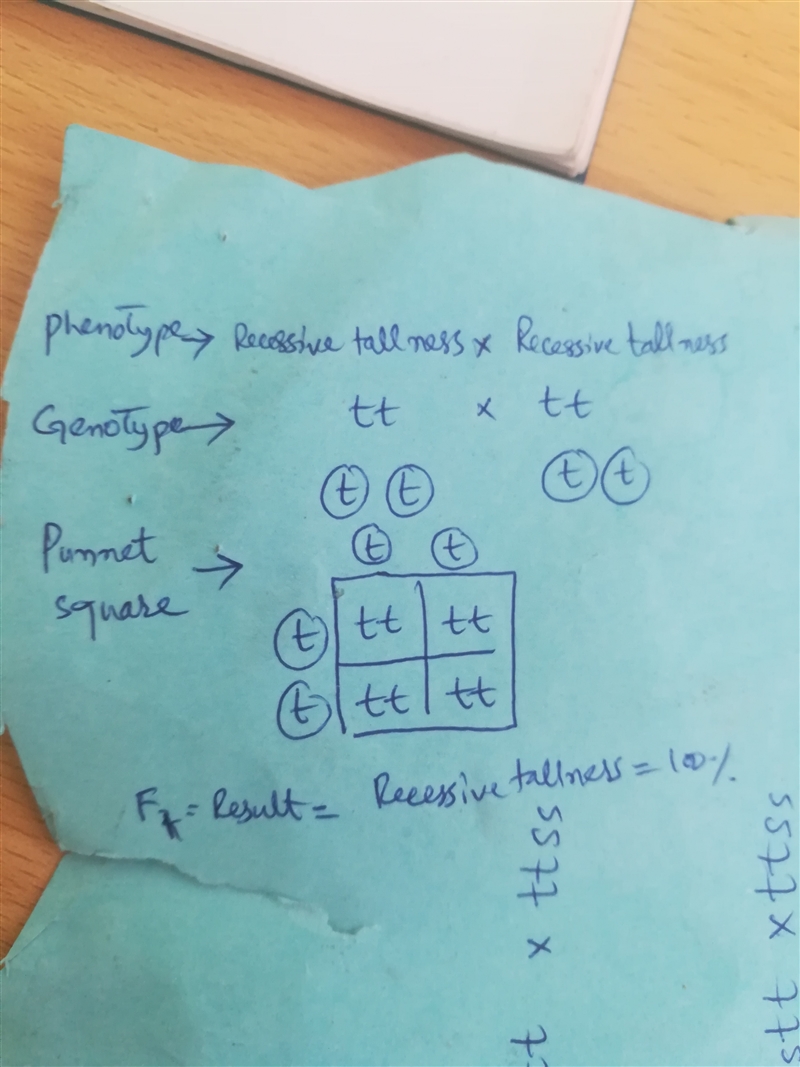 Phenotype → Recessive tallness x Recessive tallness
Genotype → tt x tt
t t t t
Punnet square → t t
t tt tt
t tt tt
= Result = Recessive tallness = 100%
x ttss
stt x ttss